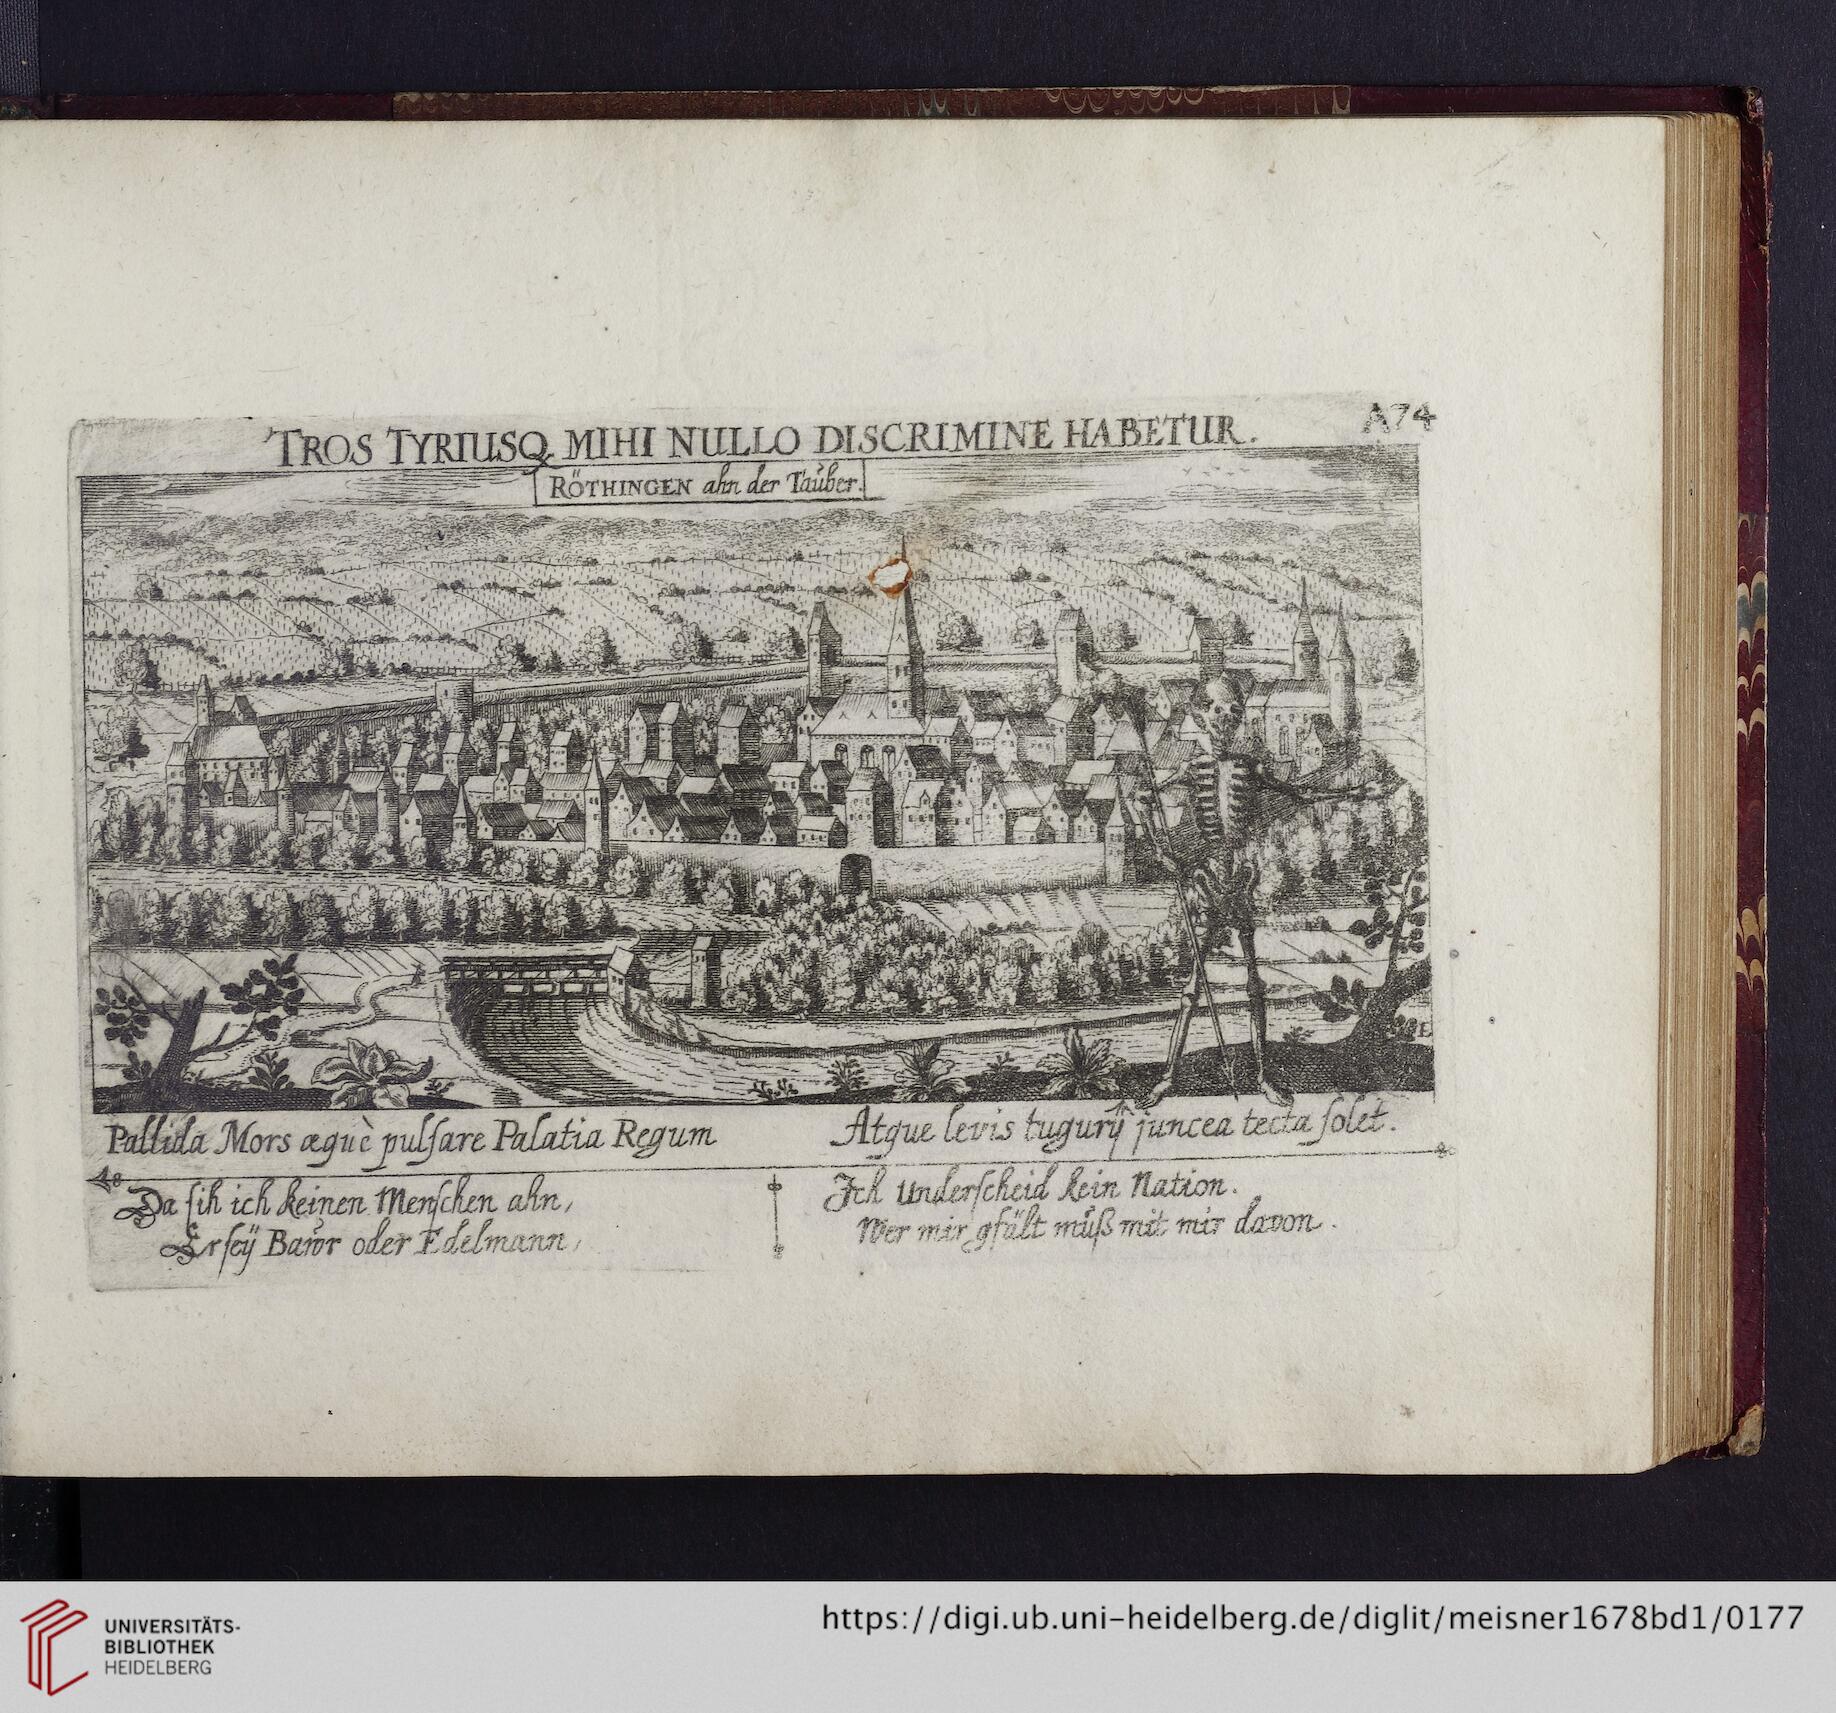 TROS TYRIUSQ MIHI NULLO DISCRIMINE HABETUR.
A74
RÖTHINGEN ahn der Taŭber.
E
Pallida Mors æquè pulſare Palatia Regum
Atque levis tugurÿ juncea tecta ſolet.
48
Da ſih ich keinen Menſchen ahn,
Er ſeÿ Bawr oder Edelmann,
Ich Underſcheid kein Nation.
Wer mir gfält mŭß mit mir davon.
UNIVERSITÄTS-
BIBLIOTHEK
HEIDELBERG
https://digi.ub.uni-heidelberg.de/diglit/meisner1678bd1/0177